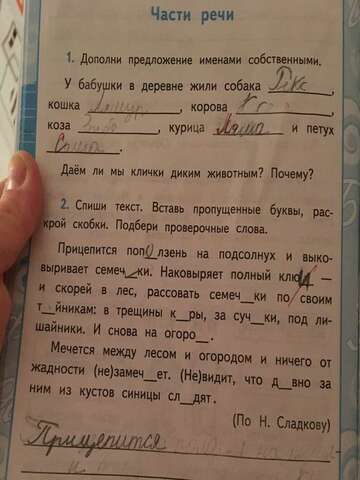 Части речи
1. Дополни предложение именами собственными.
У бабушки в деревне жили собака Рекс,
кошка ________, корова ________,
коза ________, курица ________ и петух
________.
Даём ли мы клички диким животным? Почему?
2. Спиши текст. Вставь пропущенные буквы, рас-
крой скобки. Подбери проверочные слова.
Прицепится поползень на подсолнух и выко-
выривает семеч__ки. Наковыряет полный клюв —
и скорей в лес, рассовать семеч__ки по своим
т__йникам: в трещины к__ры, за суч__ки, под ли-
шайники. И снова на огоро__.
Мечется между лесом и огородом и ничего от
жадности (не)замеч__ет. (Не)видит, что д__вно за
ним из кустов синицы сл__дят.
(По Н. Сладкову)
Прицепится